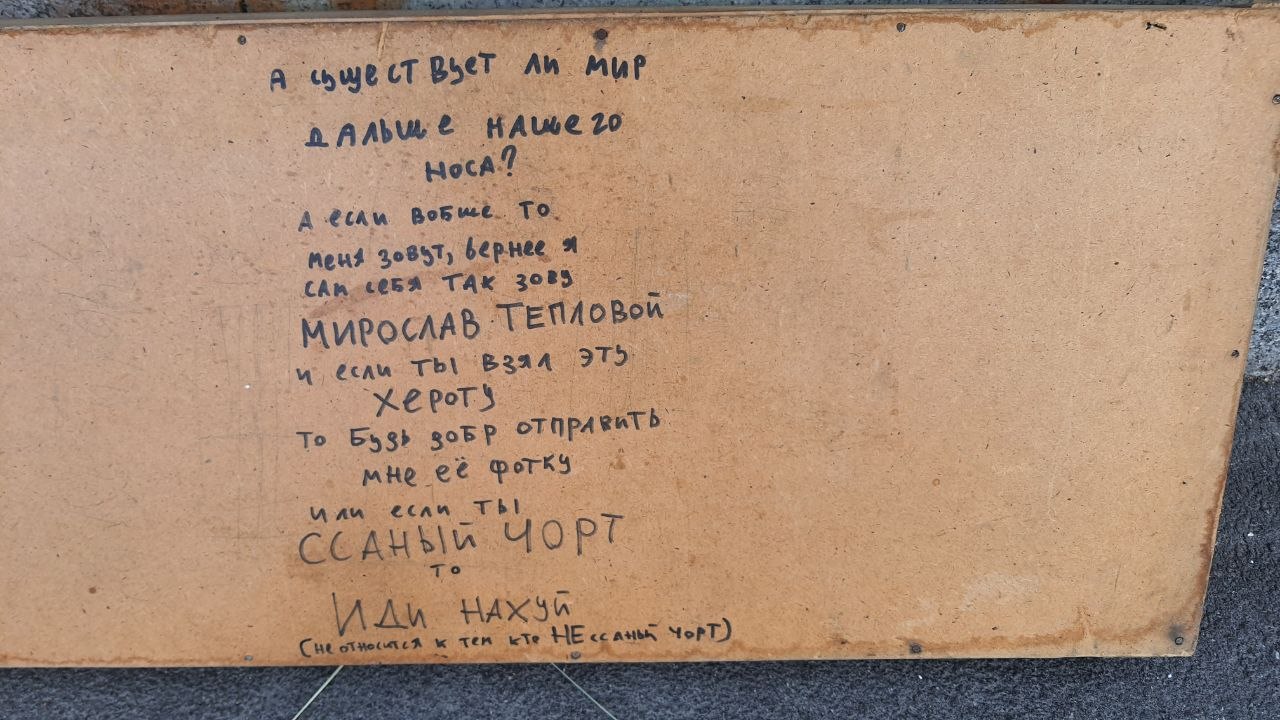 А существует ли мир
дальше нашего
носа?
А если вобше то
меня зовут, вернее я
сам себя так зову
МИРОСЛАВ ТЕПЛОВОЙ
и если ты взял эту
хероту
то будь добр отправить
мне её фотку
или если ты
ССАНЫЙ ЧОРТ
то
ИДИ НАХУЙ
(не относится к тем кто НЕ ссаный чорт)